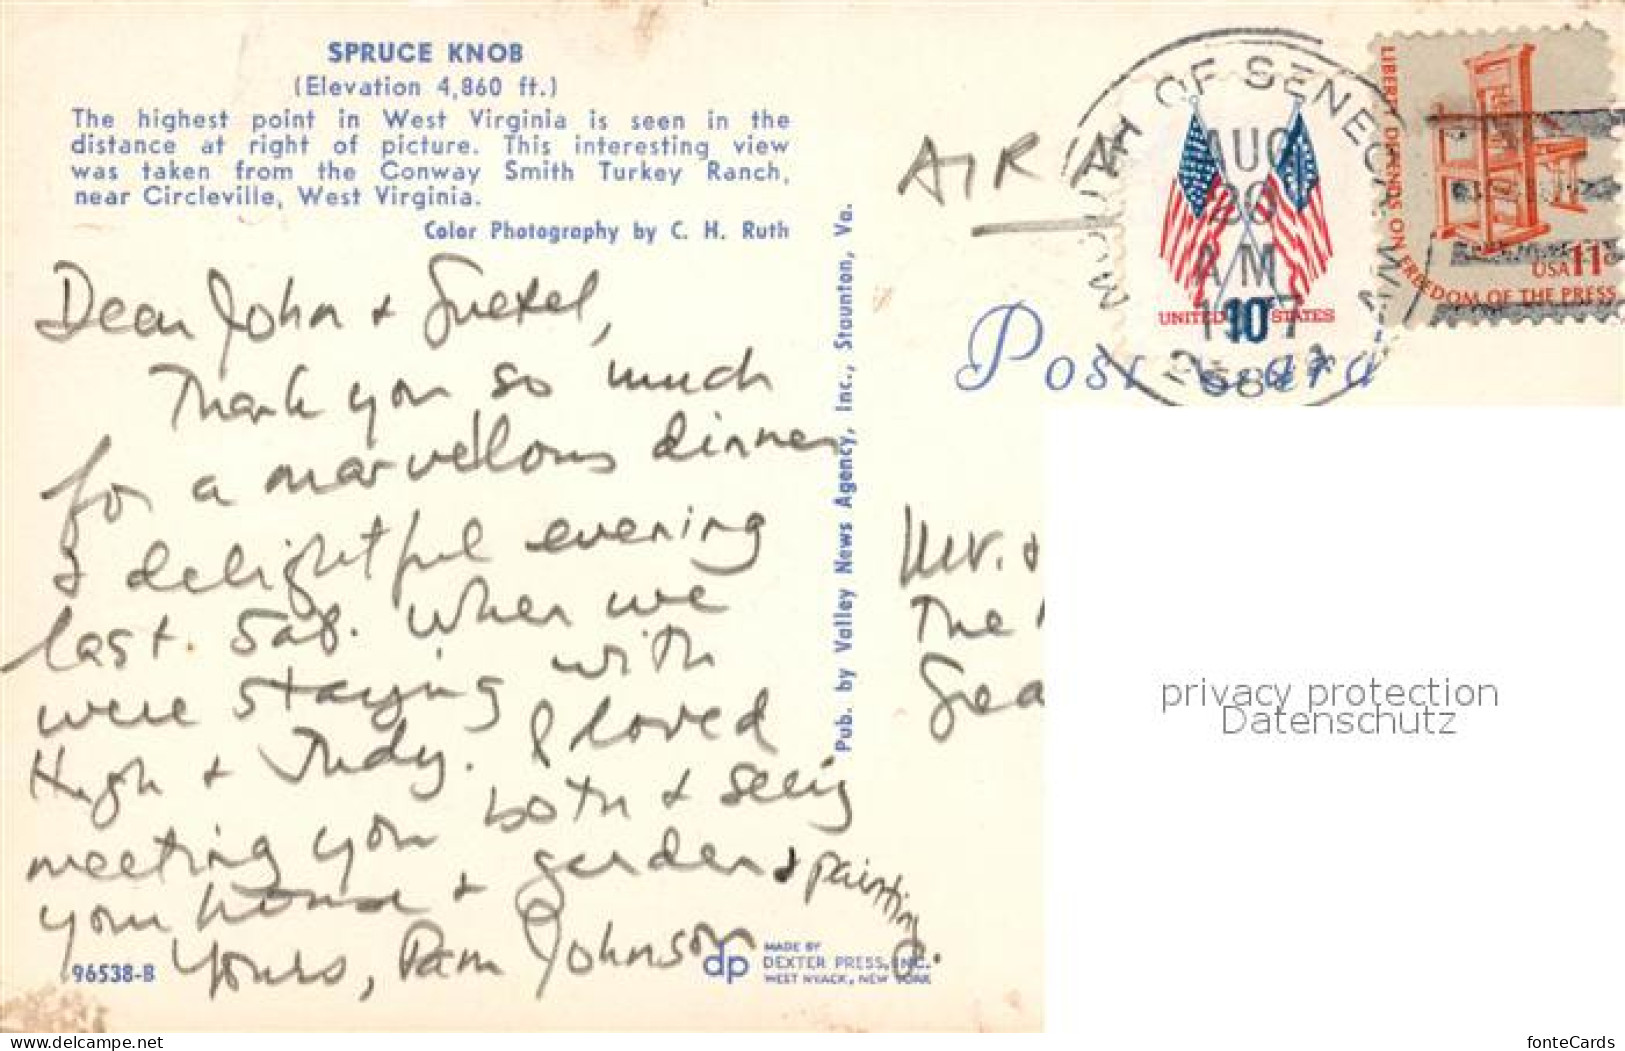 SPRUCE KNOB
(Elevation 4,860 ft.)
The highest point in West Virginia is seen in the
distance at right of picture. This interesting view
was taken from the Conway Smith Turkey Ranch,
near Circleville, West Virginia.
Color Photography by C. H. Ruth
Dear John &
Thank you so much
for a marvellous dinner
& delightful evening
last. Sat. when we
were staying with
Hugh & Judy. I loved
meeting you both & seeing
your house & garden & paintings.
Yours, Pam Johnson
96538-B
dp
MADE BY
DEXTER PRESS, INC.
WEST NYACK, NEW YORK
Pub. by Valley News Agency, Inc., Staunton, Va.
AIR
MOUTH OF SENECA W.
AUG
20
AM
UNITED STATES
10c
LIBERTY DEPENDS ON FREEDOM OF THE PRESS
USA 11c
Post Card
Mr. &
The
privacy protection
Datenschutz
www.ansichtskarten-center.com
fonteCards